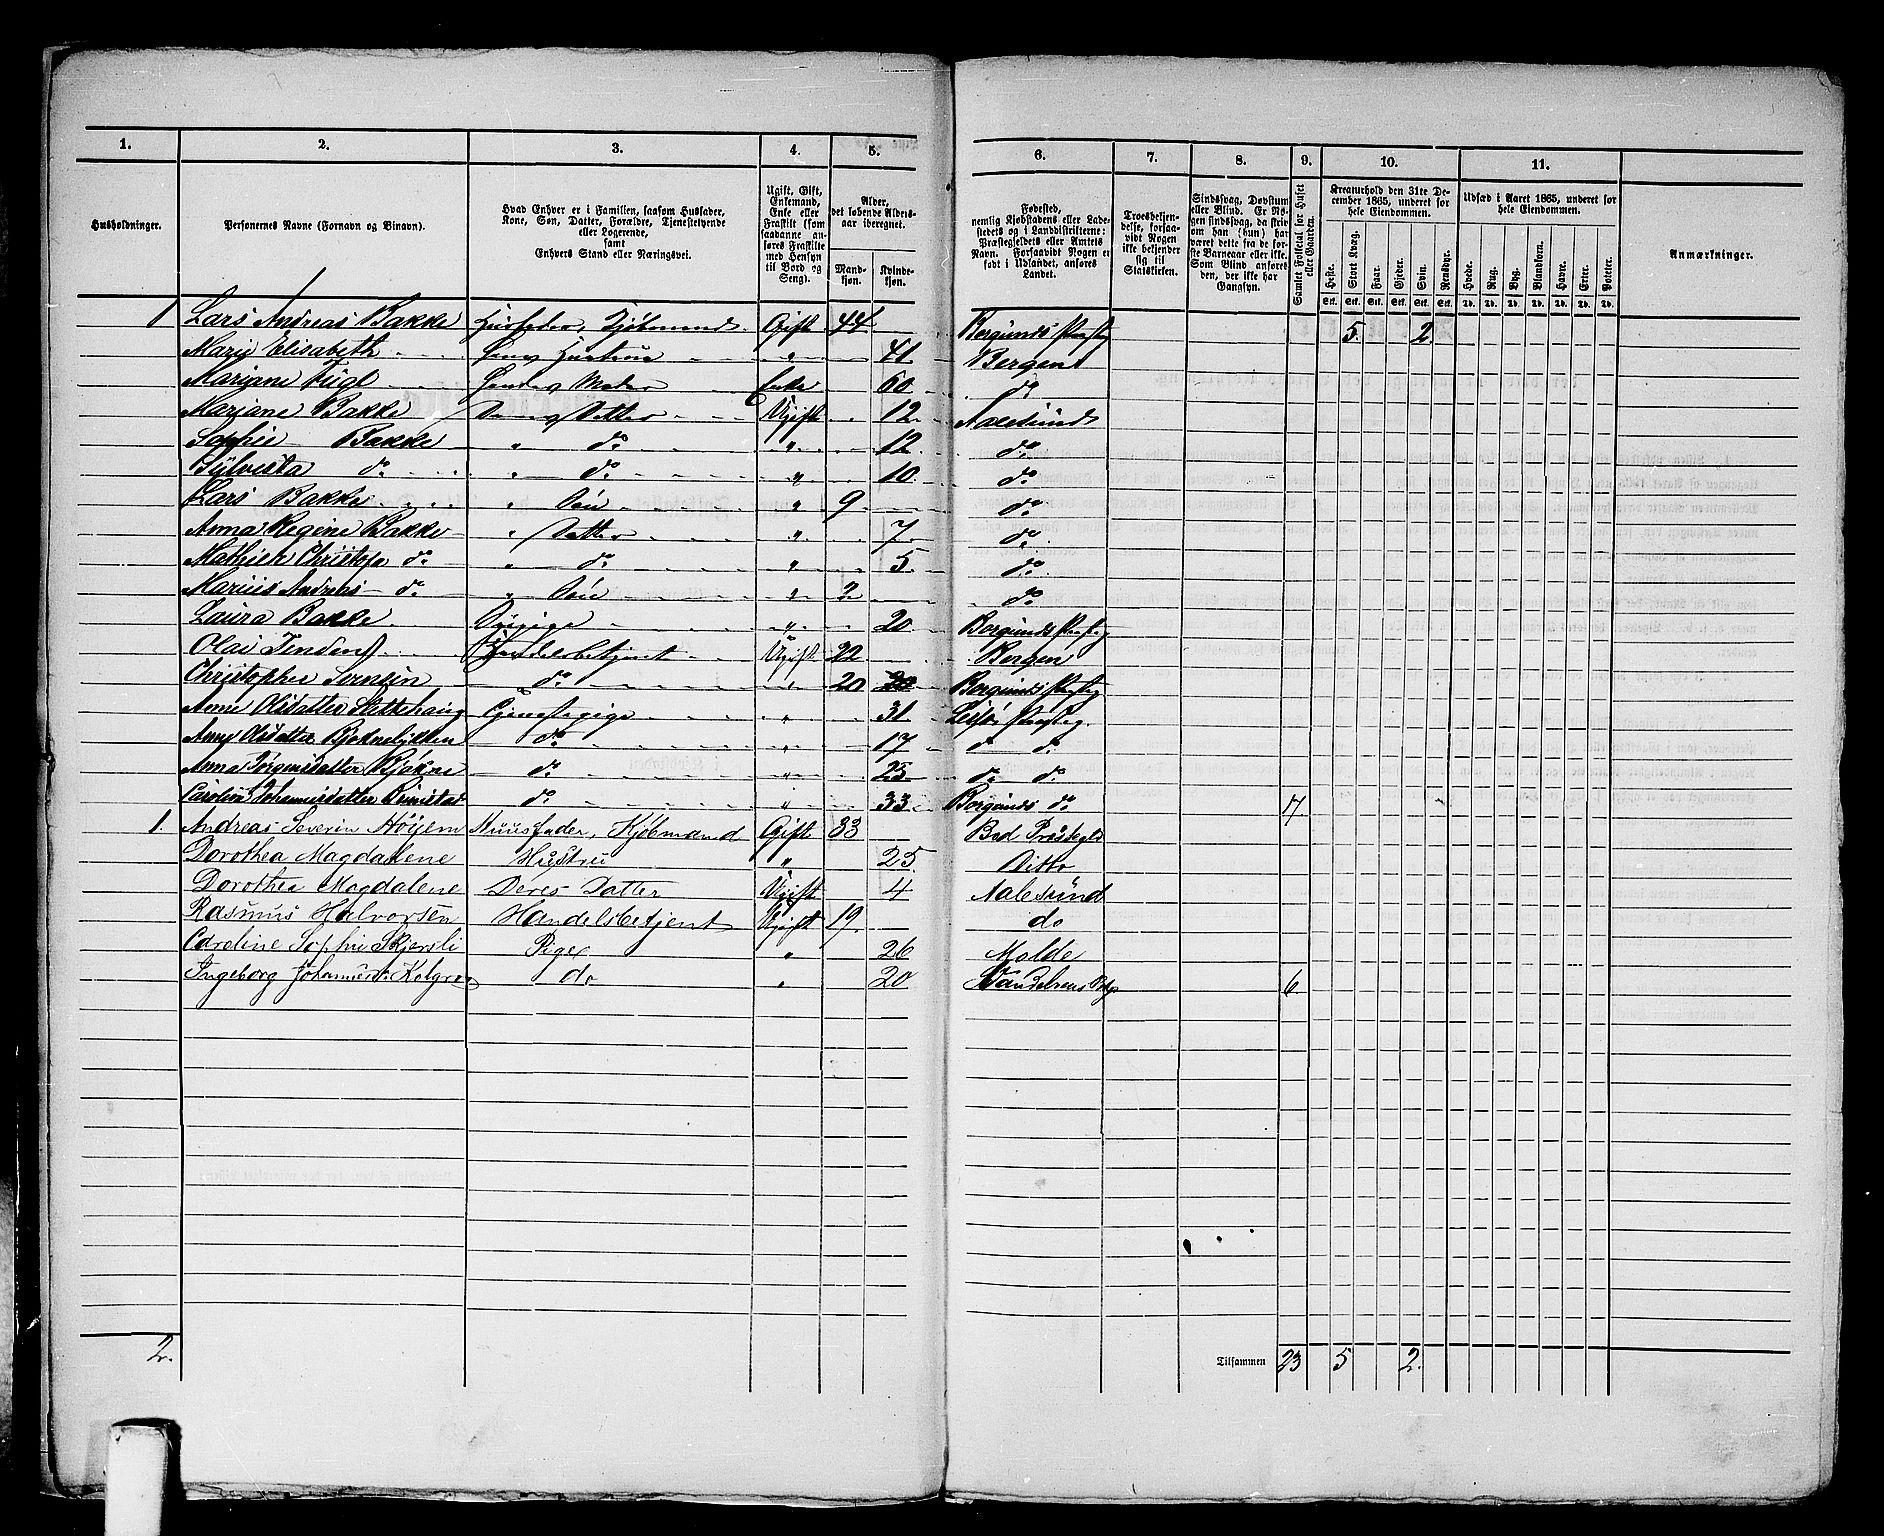 1. 2. 3. 4. 5. 6. 7. 8. 9. 10. 11.
Husholdninger. Personernes Navne (Fornavn og Binavn). Hvad Enhver er i Familien, saasom Husfader, Kone, Søn, Datter, Forældre, Tjenestetyende eller Logerende, samt Enhvers Stand eller Næringsvei. Ugift, Gift, Enkemand, Enke eller Fraskilt (som saadanne anføres Fraskilte med Hensyn til Bord og Seng). Alder, det løbende Aldersaar iberegnet. Mandkjøn. Kvindekjøn.
Fødested, nemlig Kjøbstadens eller Ladestedets og i Landdistrikterne: Præstegjeldets eller Amtets Navn. Forsaavidt Nogen er født i Udlandet, anføres Landet. Troesbekjendelse, forsaavidt Nogen ikke bekjender sig til Statskirken. Sindssvag, Døvstum eller Blind. Er Nogen sindssvag, da skrives om han (hun) har været dette fra de første Barneaar eller ikke. Som Blind anføres den, der ikke har Gangsyn. Samlet Folketal for Huset eller Gaarden. Kreaturhold den 31te December 1865, underet for hele Eiendommen. Udsæd i Aaret 1865, underet for hele Eiendommen. Anmærkninger.
Heste. Stort Kvæg. Faar. Gjeder. Svin. Rensdyr. Hvede. Rug. Byg. Blandkorn. Havre. Erter. Poteter.
1 Lars Andreas Bakke Husfader, Kjøbmand Gift 44 Borgunds Præstg 5. 2.
Marie Elisabeth Hans Hustrue " 41 Bergen
Mariane Fügl Hendes Moder Enke 60 do
Mariane Bakke Datter Ugift 12 Aalesund
Sophie Bakke " do " 12 do
Sylvesta do " do " 10 do
Lars Bakke " Søn " 9 do
Anna Regine Bakke " Datter " 7 do
Mathilde Christofa do " do " 5 do
Marius Andreas do " Søn " 2 do
Laura Bakke " 20 Borgunds Præstg
Olai Jensen Handelsbetjent Ugift 22 Bergen
Christopher do " 20 Borgunds Præstg
Anne Olsdatter Tjenestepige " 31
Anne Olsdatter do " 17 do do
Anna Jørgensdatter do " 23 do do
Caroline Johannesdatter do " 33 Borgunds do 17.
1. Andreas Severin Höijem Huusfader, Kjøbmand Gift 33 Bud Præstegld
Dorothea Magdalene Hustru " 25 Ditto
Dorothea Magdalene Deres Datter Ugift 4 Aalesund
Rasmus Halvorsen Handelsbetjent Ugift 19. do
Caroline Sophie Skjersli Pige " 26 Molde
Ingeborg do " 20 6.
2. Tilsammen 23 5 2.